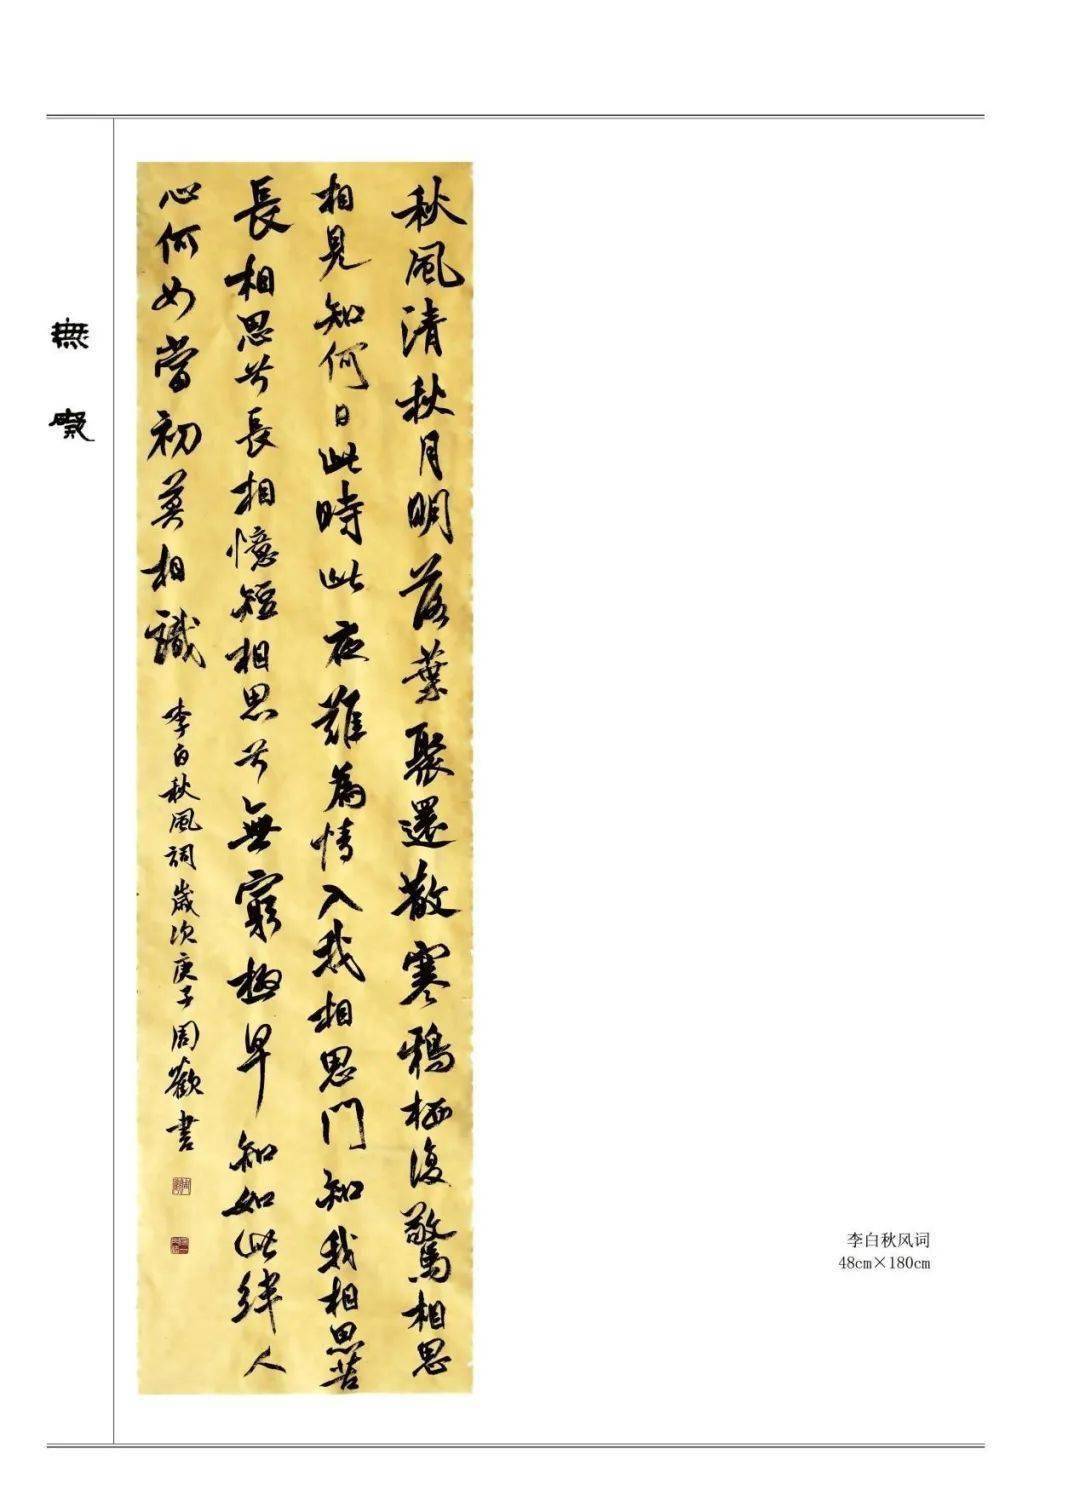 秋風清秋月明落葉聚還散寒鴉栖復驚相思
相見知何日此時此夜難為情入我相思門知我相思苦
長相思兮長相憶短相思兮無窮極早知如此絆人
心何如當初莫相識
李白秋風詞歲次庚子周歡書
李白秋风词
48cm×180cm